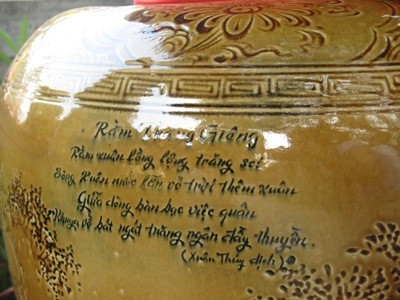 Rằm Tháng Giêng
Rằm xuân lồng lộng trăng soi
Sông Xuân nước trời thêm xuân
Giữa dòng bàn bạc việc quân
Khuya về bát ngát trăng ngân đầy thuyền.
(Xuân Thủy dịch)